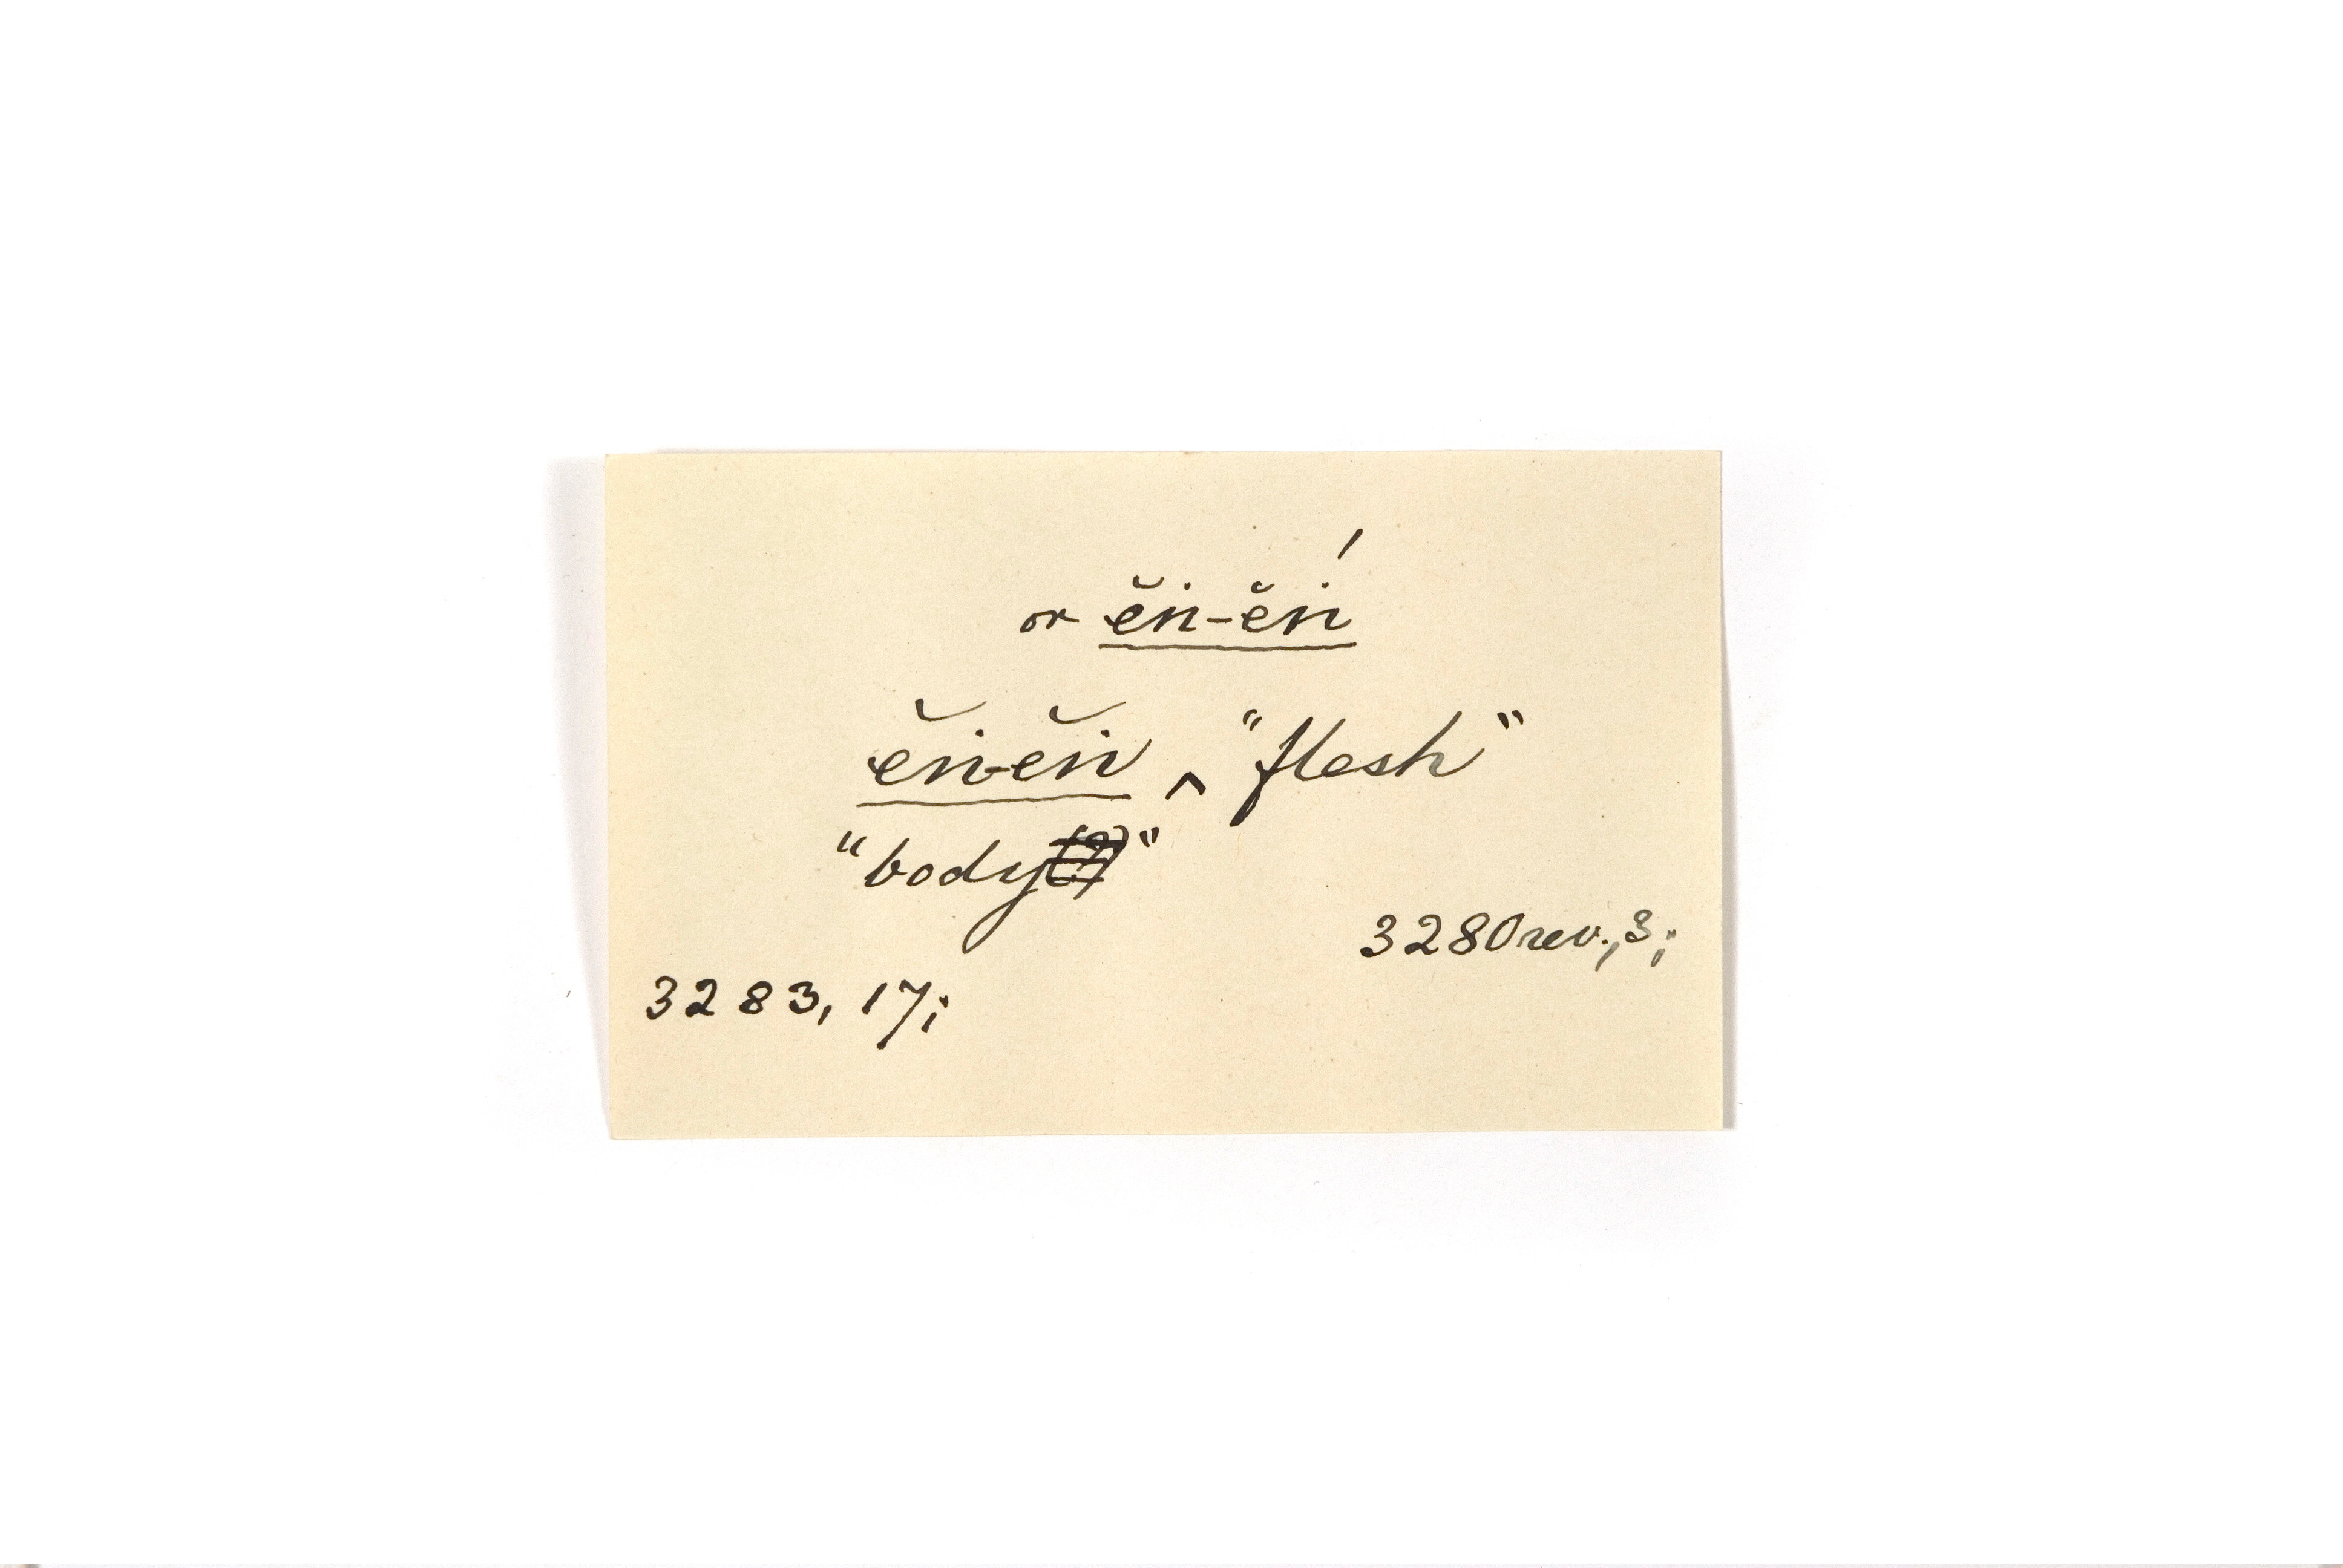 or ĕṅ-ĕṅ́
ĕṅ-ĕṅ ‸ "flesh"
"body(?)"
3280 rev., 3;
3283, 17;